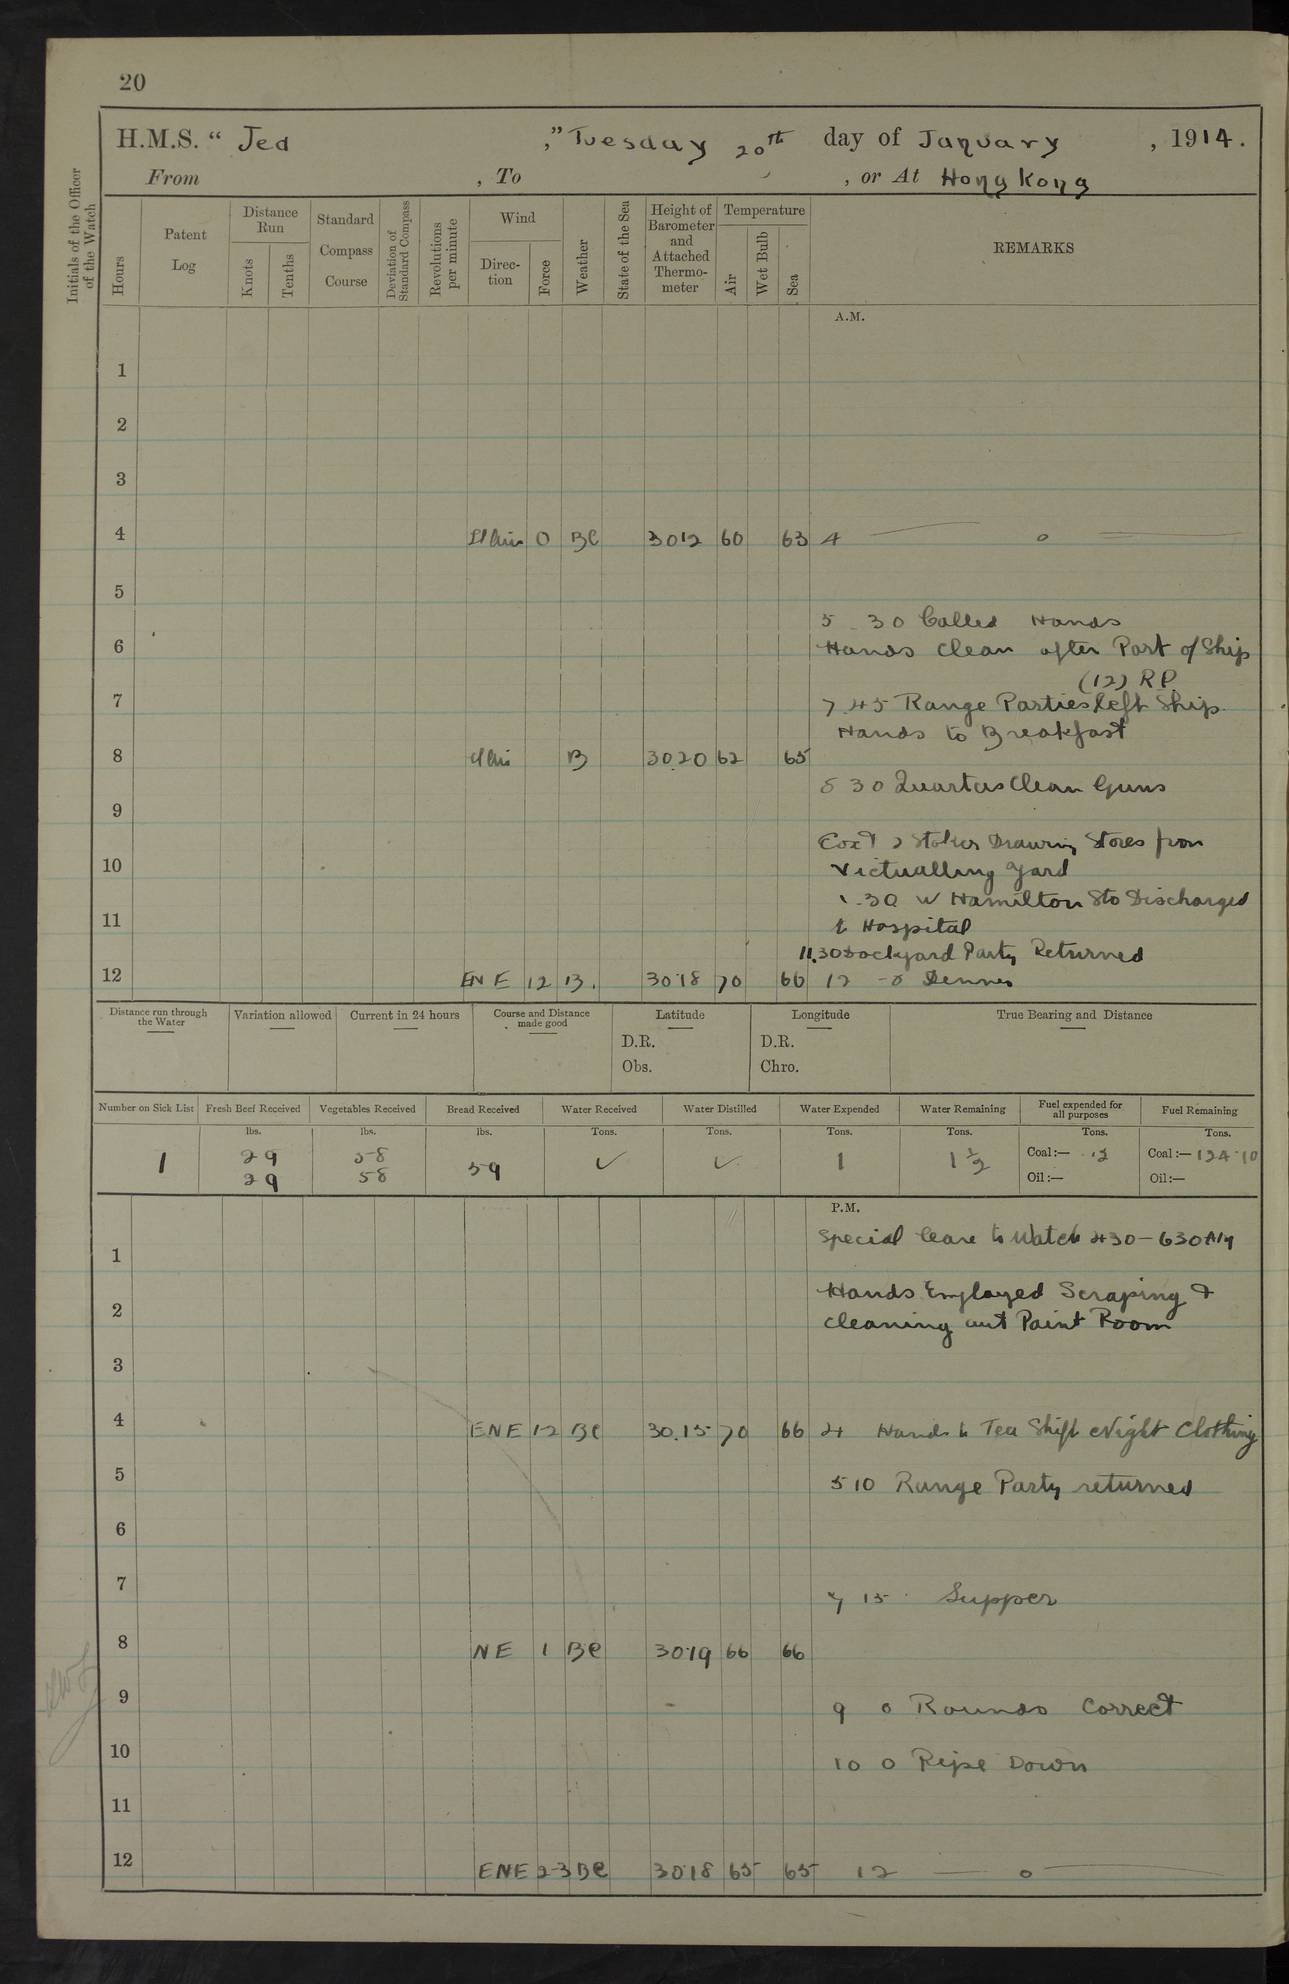 20
H.M.S. “ Jed ,” Tuesday 20th day of January , 1914.
From , To , or At Hong Kong
Initials of the Officer of the Watch
Hours
Patent Log
Distance Run
Knots
Tenths
Standard Compass Course
Deviation of Standard Compass
Revolutions per minute
Wind
Direction
Force
Weather
State of the Sea
Height of Barometer and Attached Thermometer
Temperature
Air
Wet Bulb
Sea
REMARKS
A.M.
1
2
3
4 0 BC 3012 60 63 4 — o —
5
5 . 30 Called Hands
6 Hands Clean after Part of Ship
(12) R.P.
7 7.45 Range Parties left Ship.
Hands to Breakfast
8 B 30.20 62 65
8 30 Quarters Clean Guns
9
Coxn 2 Stokers Drawing Stores from
10 Victualling Yard
.30 W Hamilton Sto Discharged
11 to Hospital
11.30 Dockyard Party Returned
12 ENE 12 B. 30.18 70 66 12 - o Dinner
Distance run through the Water
Variation allowed
Current in 24 hours
Course and Distance made good
Latitude
D.R.
Obs.
Longitude
D.R.
Chro.
True Bearing and Distance
Number on Sick List
Fresh Beef Received
Vegetables Received
Bread Received
Water Received
Water Distilled
Water Expended
Water Remaining
Fuel expended for all purposes
Fuel Remaining
lbs. lbs. lbs. Tons. Tons. Tons. Tons. Tons. Tons.
1 29 58 59 ✓ ✓ 1 1½ Coal:— .12 Coal:— 124.10
29 58 Oil:— Oil:—
P.M.
Special leave to Watch 430 – 630 A/M
1
Hands Employed Scraping &
2 cleaning out Paint Room
3
4 ENE 12 BC 30.15 70 66 4 Hands to Tea Shift Night Clothing
5 5 10 Range Party returned
6
7 7 15 Supper
8 NE 1 BC 30.19 66 66
9 9 0 Rounds Correct
10 10 0 Pipe Down
11
12 ENE 2-3 BC 30.18 65 65 12 — o —